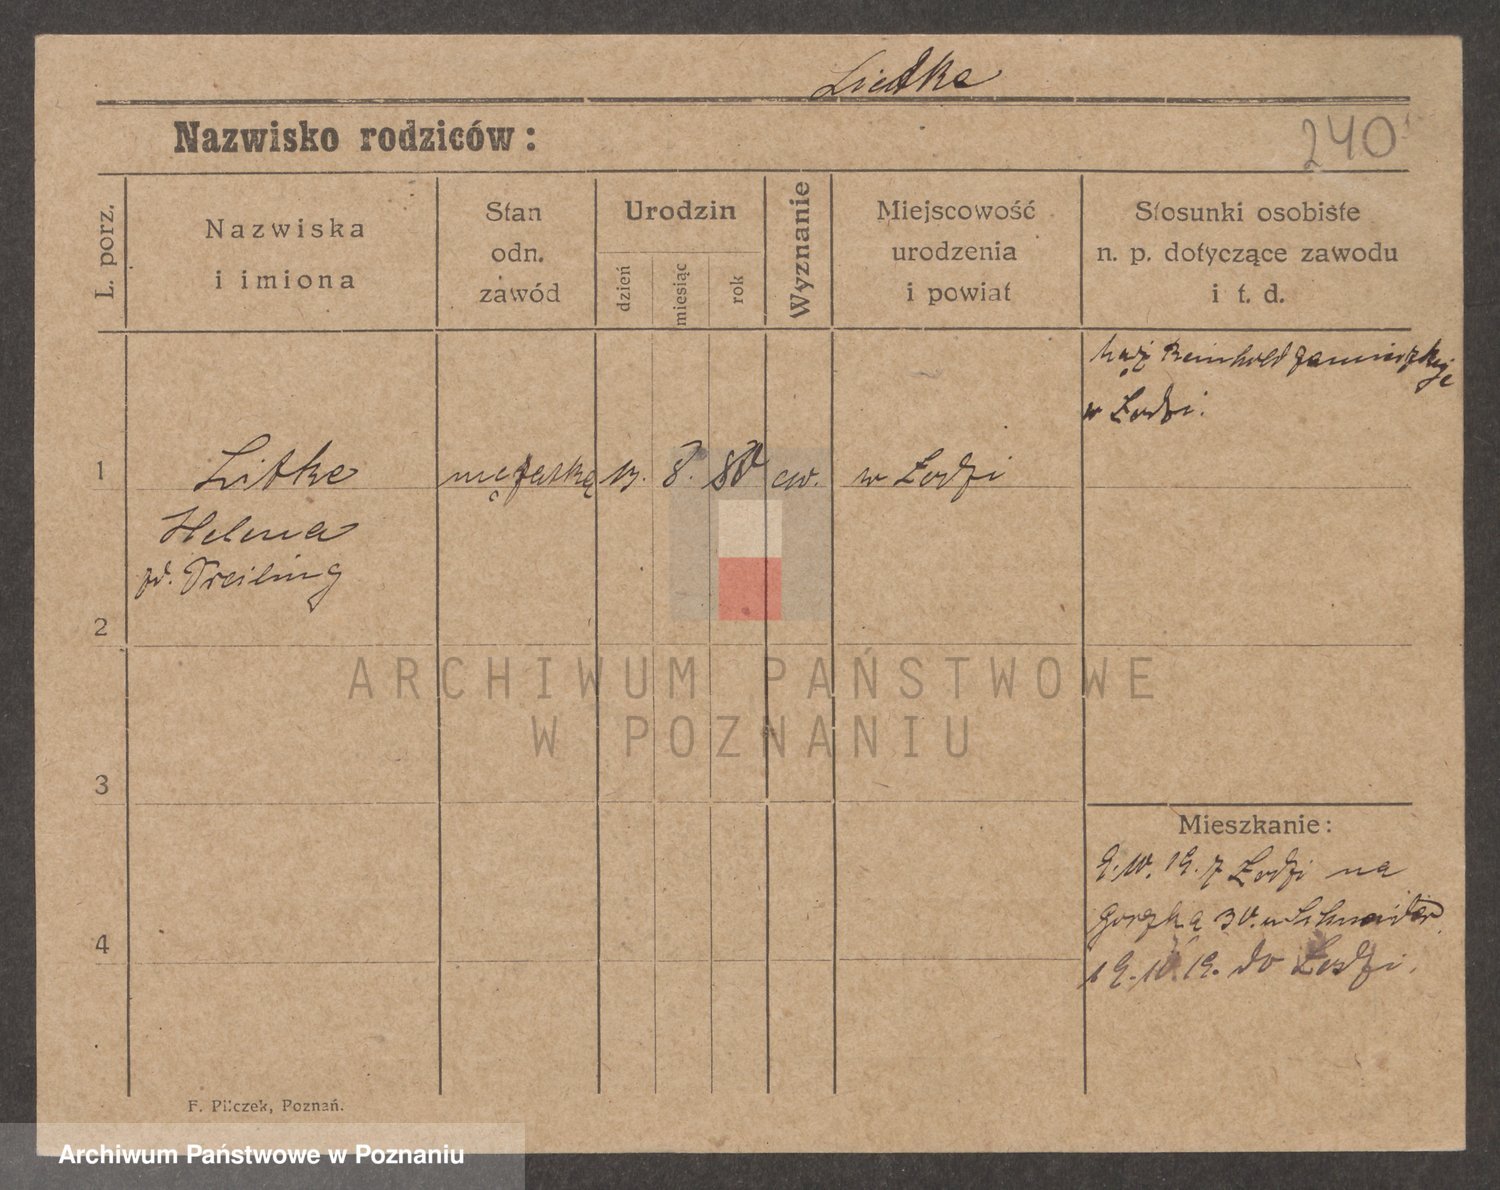 Liedtke
Nazwisko rodziców:
240
L. porz.
Nazwiska
i imiona
Stan
odn.
zawód
Urodzin
dzień
miesiąc
rok
Wyznanie
Miejscowość
urodzenia
i powiat
Stosunki osobiste
n. p. dotyczące zawodu
i t. d.
mąż Reinhold zamieszkuje
w Łodzi.
1
Litke
mężatka
13.
8.
80
ew.
w Łodzi
Helena
zd. Treiling
2
ARCHIWUM PAŃSTWOWE
W POZNANIU
3
Mieszkanie:
9.10.19. z Łodzi na
Gorzka 30. u Schneider.
4
19.10.19. do Łodzi.
F. Pilczek, Poznań.
Archiwum Państwowe w Poznaniu